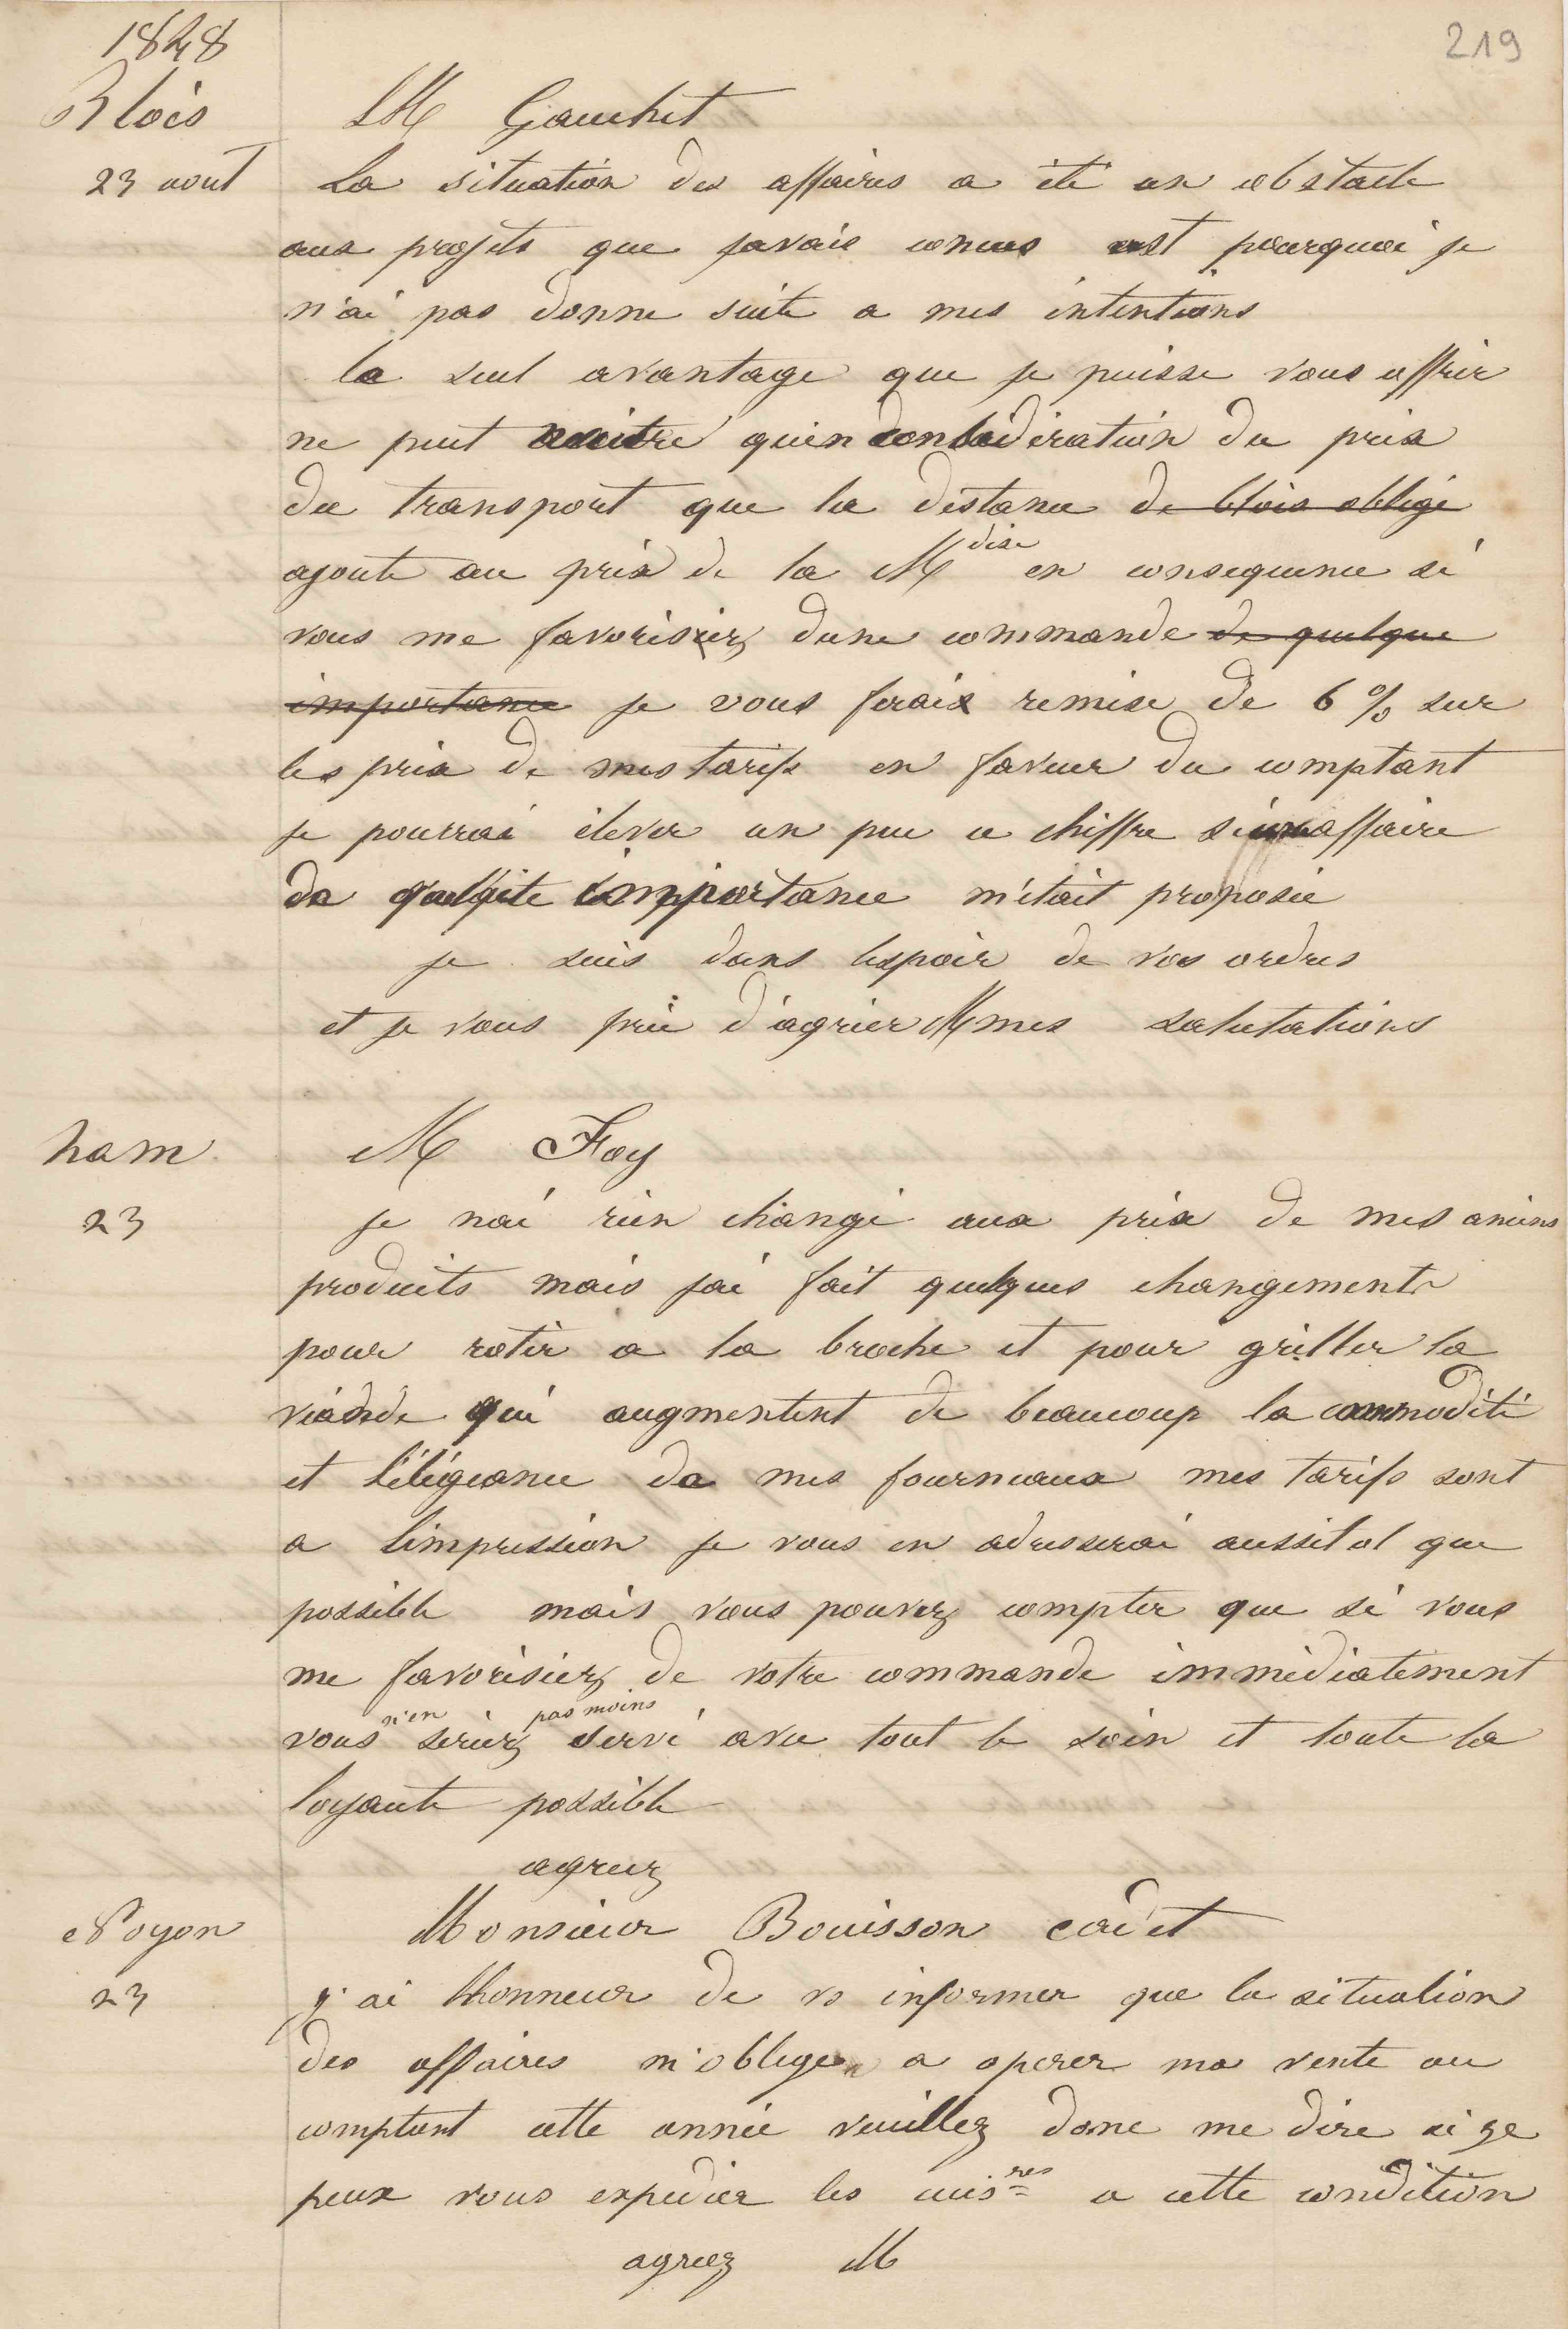 219
1848
Blois
23 aout
M Gauchet
La situation des affaires a été un obstacle
aux projets que javais concus cest pourquoi je
n'ai pas donne suite a mes intentions
le seul avantage que je puisse vous offrir
ne peut naitre qu'en considération du prix
du transport que la distance de blois oblige
ajoute au prix de la Mdise en consequence si
vous me favorisiez dune commande de quelque
importance je vous ferais remise de 6 % sur
les prix de mes tarifs en faveur du comptant
je pourrai élever un peu ce chiffre si une affaire
de quelque importance m'était proposée
je suis dans lespoir de vos ordres
et je vous prie d'agréer M mes salutations
ham
23
M Foy
je nai rien changé aux prix de mes anciens
produits mais jai fait quelques changements
pour rotir a la broche et pour griller la
viande qui augmentent de beaucoup la commodité
et l'élégeance de mes fourneaux mes tarifs sont
a limpression je vous en adresserai aussitot que
possible mais vous pouvez compter que si vous
me favorisiez de votre commande immédiatement
vous n'en seriez pas moins servi avec tout le soin et toute la
loyaute possible
agreez
Noyon
23
Monsieur Bouisson cadet
j'ai lhonneur de vs informer que la situation
des affaires m'oblige a operer ma vente au
comptant cette année veuillez donc me dire si je
peux vous expedier les cuisres a cette condition
agreez M